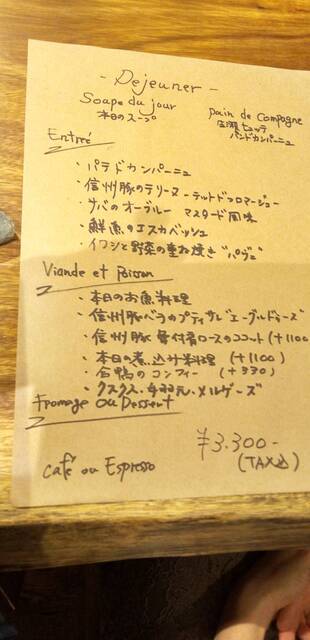 - Dejeuner -
Soupe du jour
本日のスープ
pain de Campagne
広瀬セッテ
パンドカンパーニュ
Entreé
・パテドカンパーニュ
・信州豚のテリーヌ テットドフロマージュ
・サバのオーブルー マスタード風味
・鮮魚のエスカベッシュ
・イワシと野菜の重ね焼き"パヴェ"
Viande et Poisson
・本日のお魚料理
・信州豚バラのプティサレ エーグルドゥース
・信州豚 骨付肩ロースのココット (+1100
・本日の煮込み料理 (+1100)
・合鴨のコンフィー (+330)
・クスクス・手羽元・メルゲーズ
Fromage ou Dessert
¥3.300-
(TAX込)
café ou Espresso